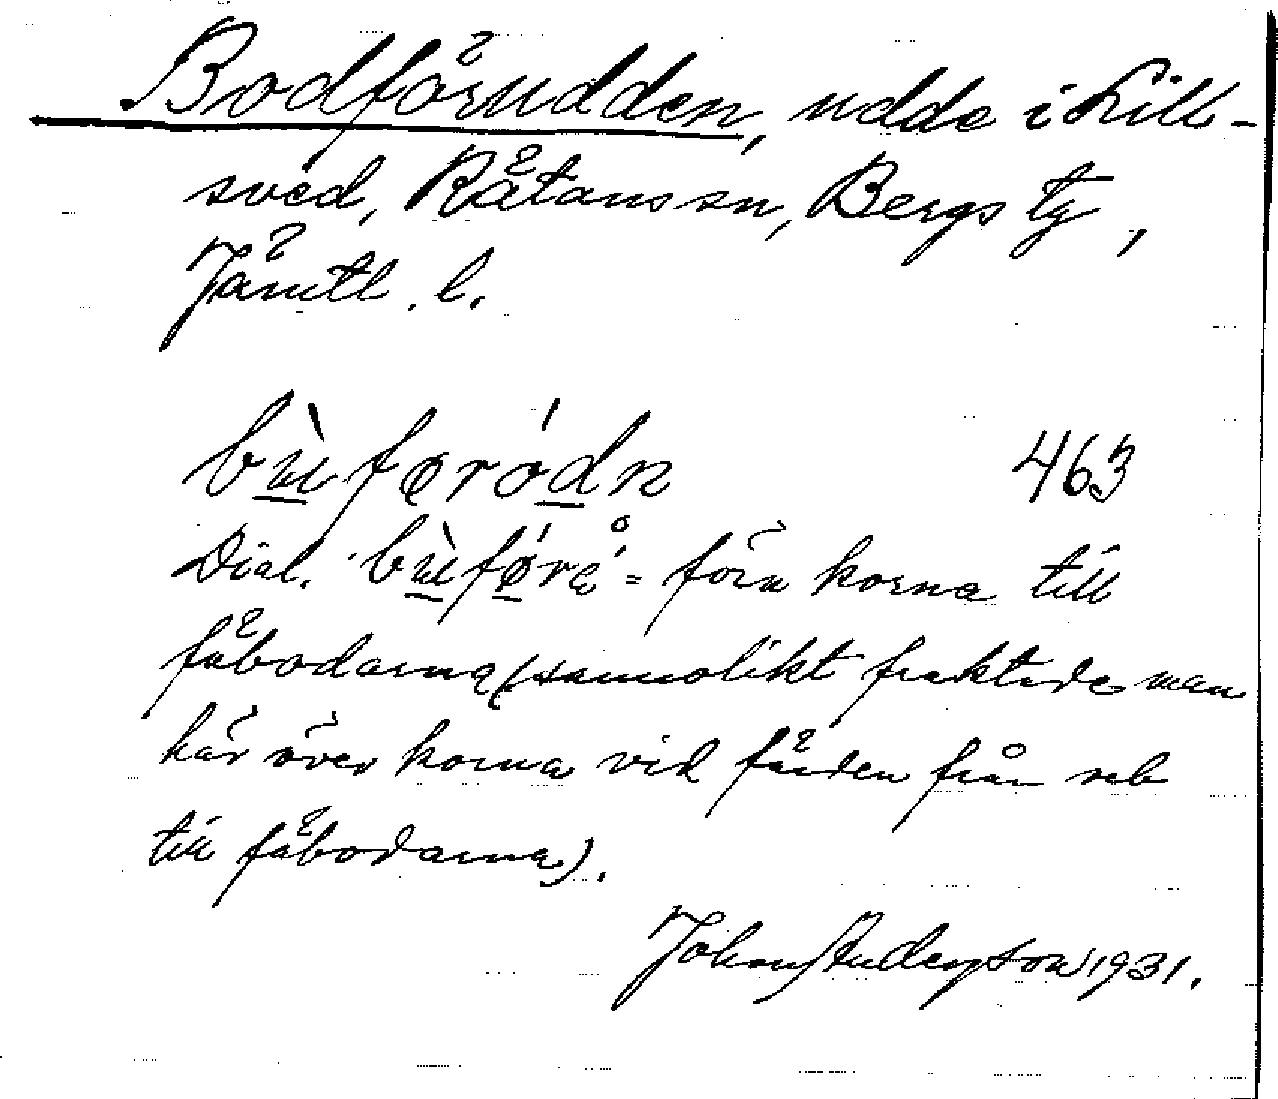 Bodförudden, udde i Lill-
sved, Råtans sn, Bergs tg,
Jämtl. l.
bù̲fǫró̲dn 463
Dial. bù̲fǿ̲rå = föra korna till
fäbodarna (sannolikt fraktade man
här över korna vid färden från
till fäbodarna).
John Anderson 1931.